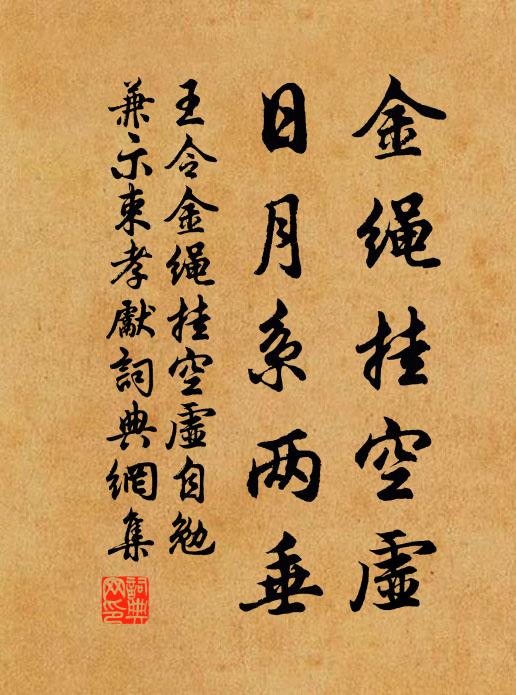 金绳挂空虚
日月系两垂
王令金绳挂空虚自勉
兼示束孝献詞典網集
詞典網印